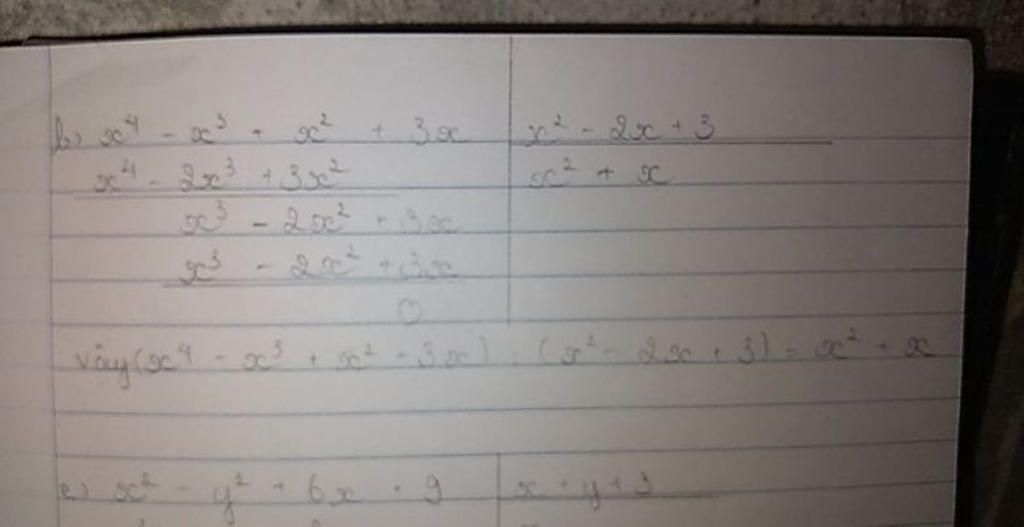 b) x⁴ - x³ + x² + 3x | x² - 2x + 3
x⁴ - 2x³ + 3x² | x² + x
x³ - 2x² + 3x
x³ - 2x² + 3x
0
Vậy (x⁴ - x³ + x² - 3x) : (x² - 2x + 3) = x² + x
c) x² - y² + 6x + 9 | x + y + 3